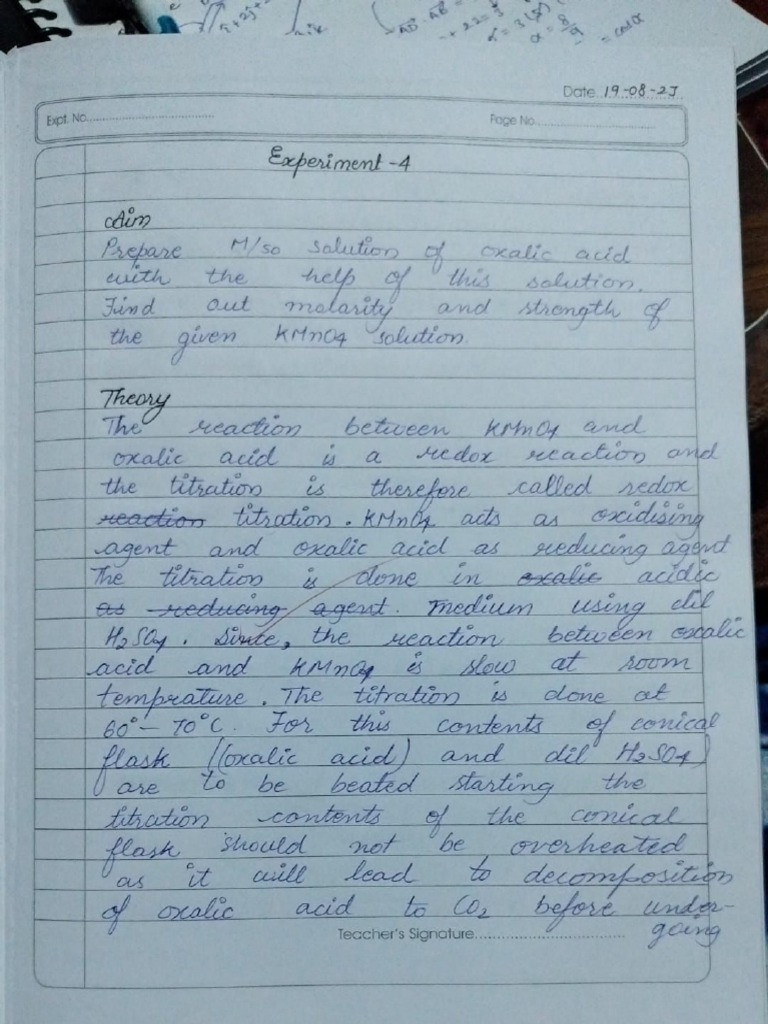 î+2ĵ+
Date 19-08-25
Expt. No.
Page No.
Experiment -4
Aim
Prepare M/50 solution of oxalic acid
with the help of this solution.
Find out molarity and strength of
the given KMnO4 solution.
Theory
The reaction between KMnO4 and
oxalic acid is a redox reaction and
the titration is therefore called redox
reaction titration. KMnO4 acts as oxidising
agent and oxalic acid as reducing agent
The titration is done in oxalic acidic
as reducing agent. medium using dil
H2SO4. Since, the reaction between oxalic
acid and KMnO4 is slow at room
temprature. The titration is done at
60°- 70°C. For this contents of conical
flask ((oxalic acid) and dil H2SO4)
are to be beated starting the
titration contents of the conical
flask should not be overheated
as it will lead to decomposition
of oxalic acid to CO2 before under-
going
Teacher's Signature